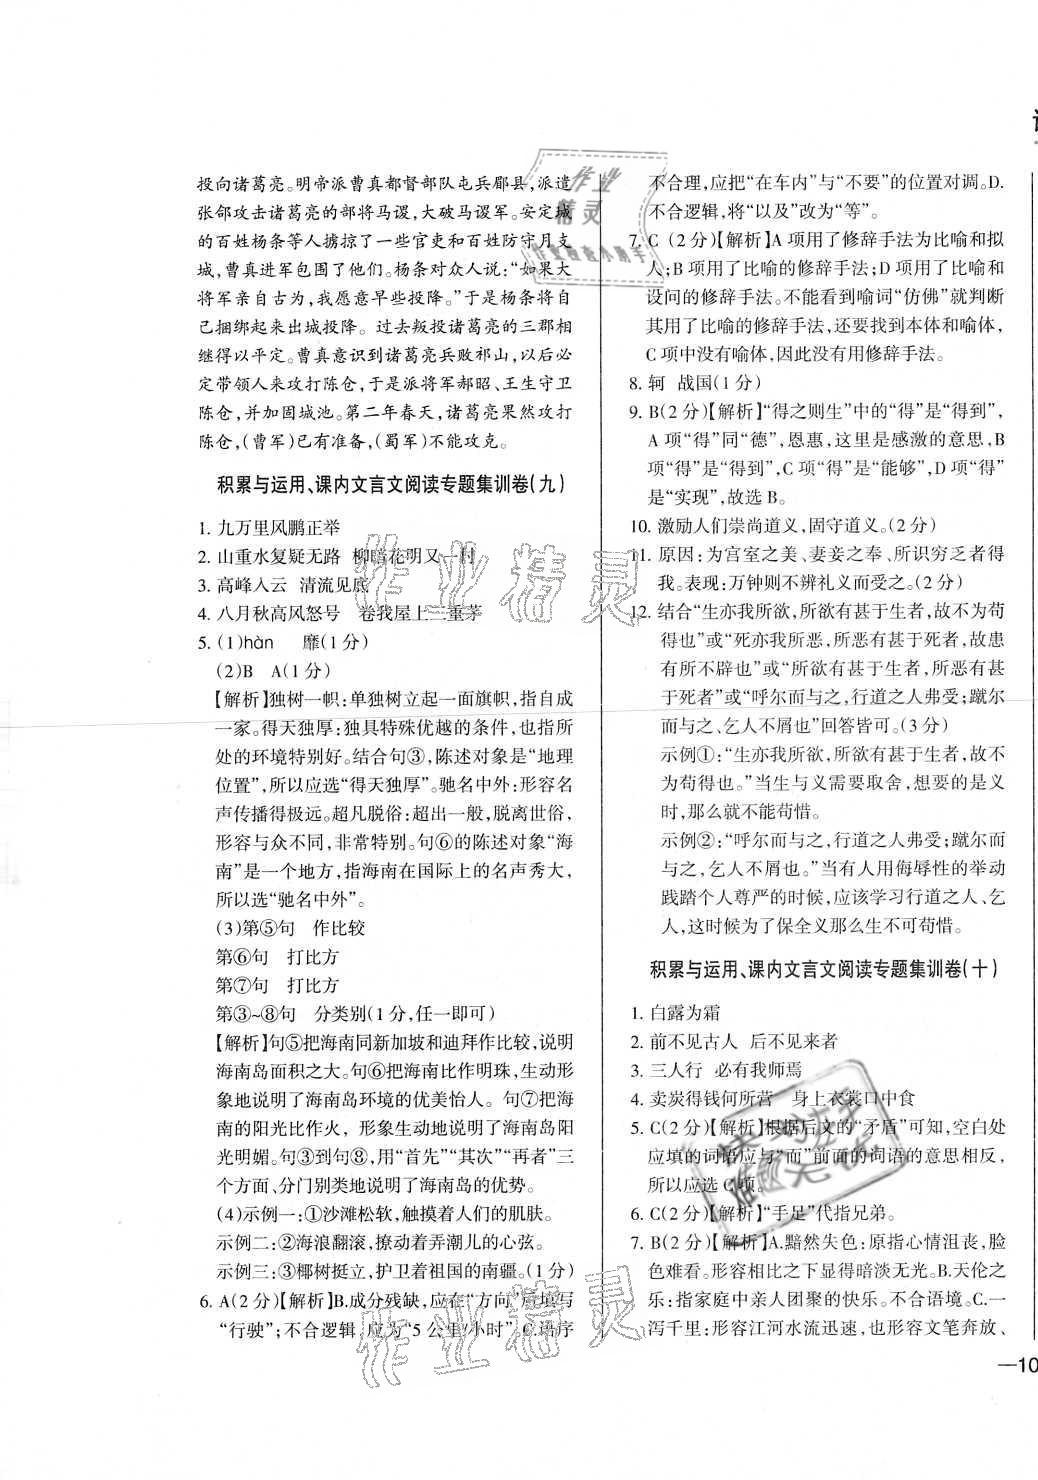 投向诸葛亮。明帝派曹真都督部队屯兵郿县,派遣
张郃攻击诸葛亮的部将马谡,大破马谡军。安定城
的百姓杨条等人掳掠了一些官吏和百姓防守月支
城,曹真进军包围了他们。杨条对众人说:“如果大
将军亲自去为,我愿意早些投降。”于是杨条将自
己捆绑起来出城投降。过去叛投诸葛亮的三郡相
继得以平定。曹真意识到诸葛亮兵败祁山,以后必
定带领人来攻打陈仓,于是派将军郝昭、王生守卫
陈仓,并加固城池。第二年春天,诸葛亮果然攻打
陈仓,(曹军)已有准备,(蜀军)不能攻克。
积累与运用、课内文言文阅读专题集训卷(九)
1. 九万里风鹏正举
2. 山重水复疑无路 柳暗花明又一村
3. 高峰入云 清流见底
4. 八月秋高风怒号 卷我屋上三重茅
5. (1)hàn 靡(1分)
(2)B A(1分)
【解析】独树一帜:单独树立起一面旗帜,指自成
一家。得天独厚:独具特殊优越的条件,也指所
处的环境特别好。结合句③,陈述对象是“地理
位置”,所以应选“得天独厚”。驰名中外:形容名
声传播得极远。超凡脱俗:超出一般,脱离世俗,
形容与众不同,非常特别。句⑥的陈述对象“海
南”是一个地方,指海南在国际上的名声秀大,
所以选“驰名中外”。
(3)第⑤句 作比较
第⑥句 打比方
第⑦句 打比方
第③~⑧句 分类别(1分,任一即可)
【解析】句⑤把海南同新加坡和迪拜作比较,说明
海南岛面积之大。句⑥把海南比作明珠,生动形
象地说明了海南岛环境的优美怡人。句⑦把海
南的阳光比作火,形象生动地说明了海南岛阳
光明媚。句③到句⑧,用“首先”“其次”“再者”三
个方面、分门别类地说明了海南岛的优势。
(4)示例一:①沙滩松软,触摸着人们的肌肤。
示例二:②海浪翻滚,撩动着弄潮儿的心弦。
示例三:③椰树挺立,护卫着祖国的南疆。(1分)
6. A(2分)【解析】B.成分残缺,应在“方向”后填写
“行驶”;不合逻辑 应为“5公里/小时”。C.语序
不合理,应把“在车内”与“不要”的位置对调。D.
不合逻辑,将“以及”改为“等”。
7. C(2分)【解析】A项用了修辞手法为比喻和拟
人;B项用了比喻的修辞手法;D项用了比喻和
设问的修辞手法。不能看到喻词“仿佛”就判断
其用了比喻的修辞手法,还要找到本体和喻体,
C项中没有喻体,因此没有用修辞手法。
8. 轲 战国(1分)
9. B(2分)【解析】“得之则生”中的“得”是“得到”,
A项“得”同“德”,恩惠,这里是感激的意思,B
项“得”是“得到”,C项“得”是“能够”,D项“得”
是“实现”,故选B。
10. 激励人们崇尚道义,固守道义。(2分)
11. 原因:为宫室之美、妻妾之奉、所识穷乏者得
我。表现:万钟则不辨礼义而受之。(2分)
12. 结合“生亦我所欲,所欲有甚于生者,故不为苟
得也”或“死亦我所恶,所恶有甚于死者,故患
有所不辟也”或“所欲有甚于生者,所恶有甚
于死者”或“呼尔而与之,行道之人弗受;蹴尔
而与之,乞人不屑也”回答皆可。(3分)
示例①:“生亦我所欲,所欲有甚于生者,故不
为苟得也。”当生与义需要取舍,想要的是义
时,那么就不能苟惜。
示例②:“呼尔而与之,行道之人弗受;蹴尔而
与之,乞人不屑也。”当有人用侮辱性的举动
践踏个人尊严的时候,应该学习行道之人、乞
人,这时候为了保全义那么生不可苟惜。
积累与运用、课内文言文阅读专题集训卷(十)
1. 白露为霜
2. 前不见古人 后不见来者
3. 三人行 必有我师焉
4. 卖炭得钱何所营 身上衣裳口中食
5. C(2分)【解析】根据后文的“矛盾”可知,空白处
应填的词语应与“而”前面的词语的意思相反,
所以应选C项。
6. C(2分)【解析】“手足”代指兄弟。
7. B(2分)【解析】A.黯然失色:原指心情沮丧,脸
色难看。形容相比之下显得暗淡无光。B.天伦之
乐:指家庭中亲人团聚的快乐。不合语境。C.一
泻千里:形容江河水流迅速,也形容文笔奔放、
—10
作业
精灵
作业检查小助手
作业精灵
作业精灵